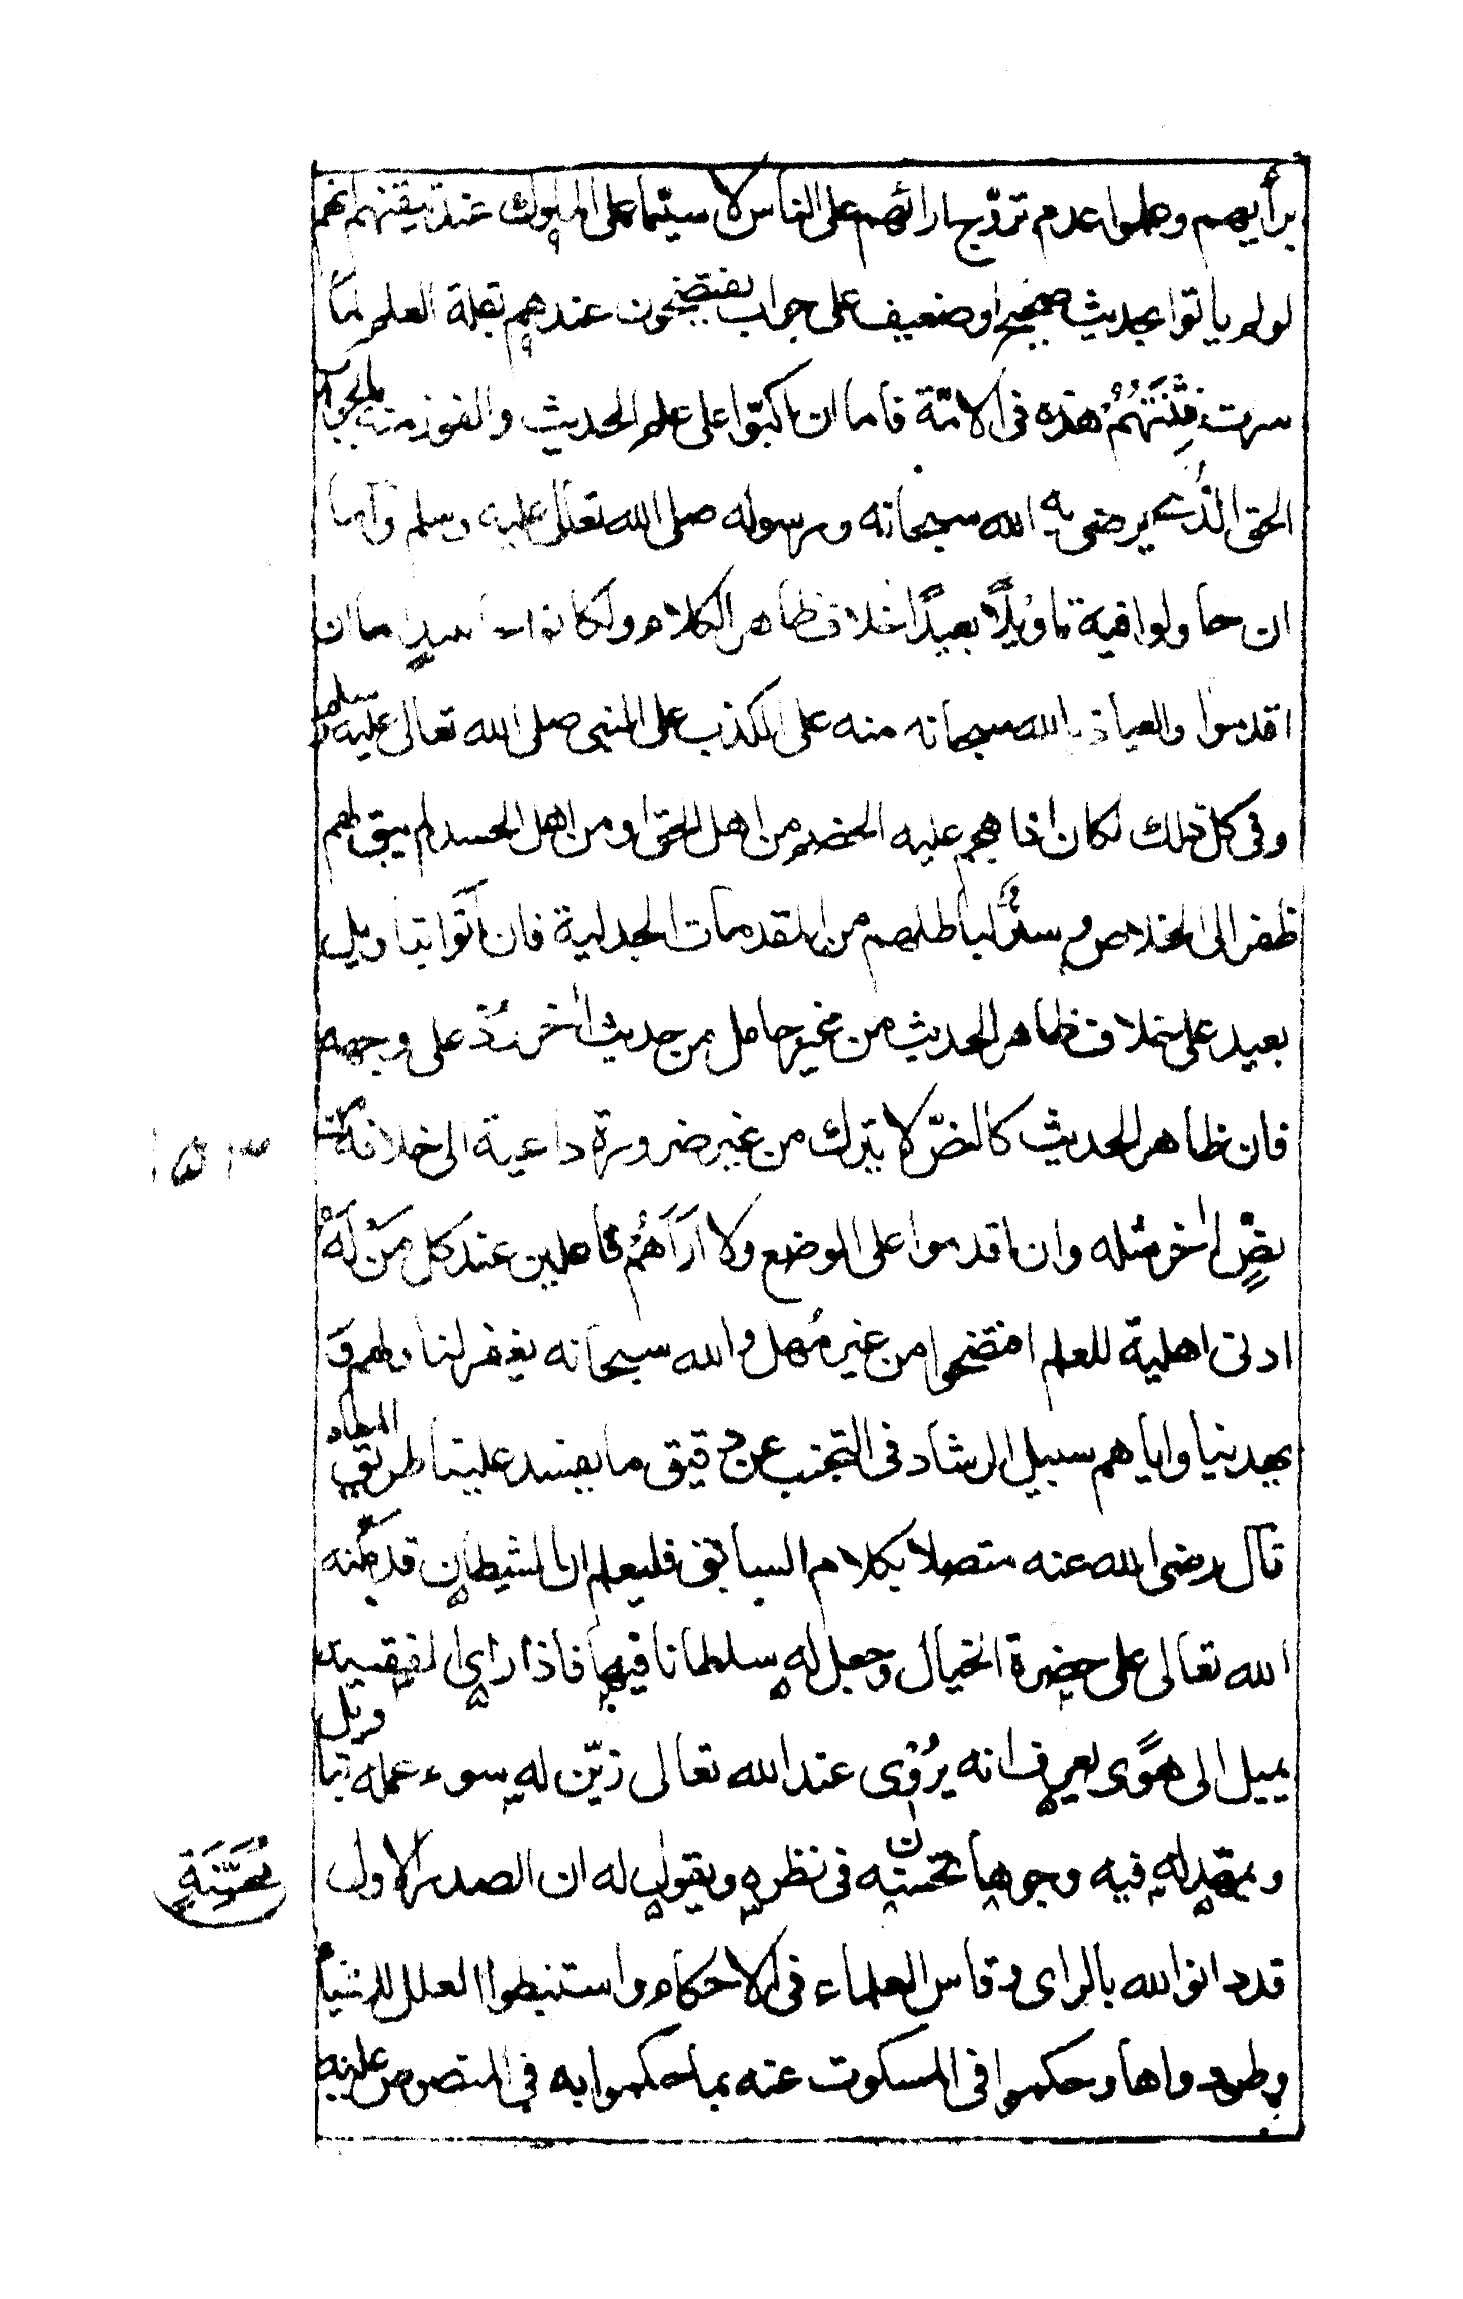 برأيهم وعلموا عدم تروّج ارائهم على الناس لا سيّما على الملوك عند تيقنهم انهم
لو لم ياتوا بحديث صحيح او ضعيف على جواب يفتضحون عندهم بقلة العلم لما
سرت فتنتهم هذه فى الامّة فاما ان اكبّوا على علم الحديث والفوز منه بالجواب
الحق الذى يرضى به الله سبحانه ورسوله صلى الله تعالى عليه وسلم واما
ان حاولوا فيه تاويلًا بعيدًا خلاف ظاهر الكلام ولكانوا اما ان
اقدموا والعياذ بالله سبحانه منه على الكذب على النبى صلى الله تعالى عليه وسلم
وفى كل ذلك لكان اذا هجم عليه الخصم من اهل الحق او من اهل الحسد لم يبق لهم
ظفر الى الخلاص و ستر لباطلهم من المقدمات الجدلية فان اتوا بتاويل
بعيد على خلاف ظاهر الحديث من غير حامل من حديث اخر نُبذ على وجهه
فان ظاهر الحديث كالنصّ لا يترك من غير ضرورة داعية الى خلافه من
نصٍّ اخر مثله وان اقدموا على الوضع ولا اراهُم فاعلين عند كل مَنْ لَهُ
ادنى اهلية للعلم افتضحوا من غير مُهل والله سبحانه يغفر لنا ولهم وَ
يهدينا واياهم سبيل الرشاد فى التجنب عن دقيق ما يفسد علينا طريق المعاد
قال رضى الله عنه متصلا بكلام السابق فليعلم ان الشيطان قد مكّنه
الله تعالى على حضرة الخيال وجعل له سلطانا فيها فاذا راى الفقيه
يميل الى هوًى يعرف انه يُرْدى عند الله تعالى زيّن له سوء عمله بتاويل
ويمهّد له فيه وجوها تحسّنه فى نظره ويقول له ان الصدر الاول
قد دانوا الله بالراى وقاس العلماء فى الاحكام واستنبطوا العلل للاشياء
وطردوها وحكموا فى المسكوت عنه بما حكموا به فى المنصوص عليه